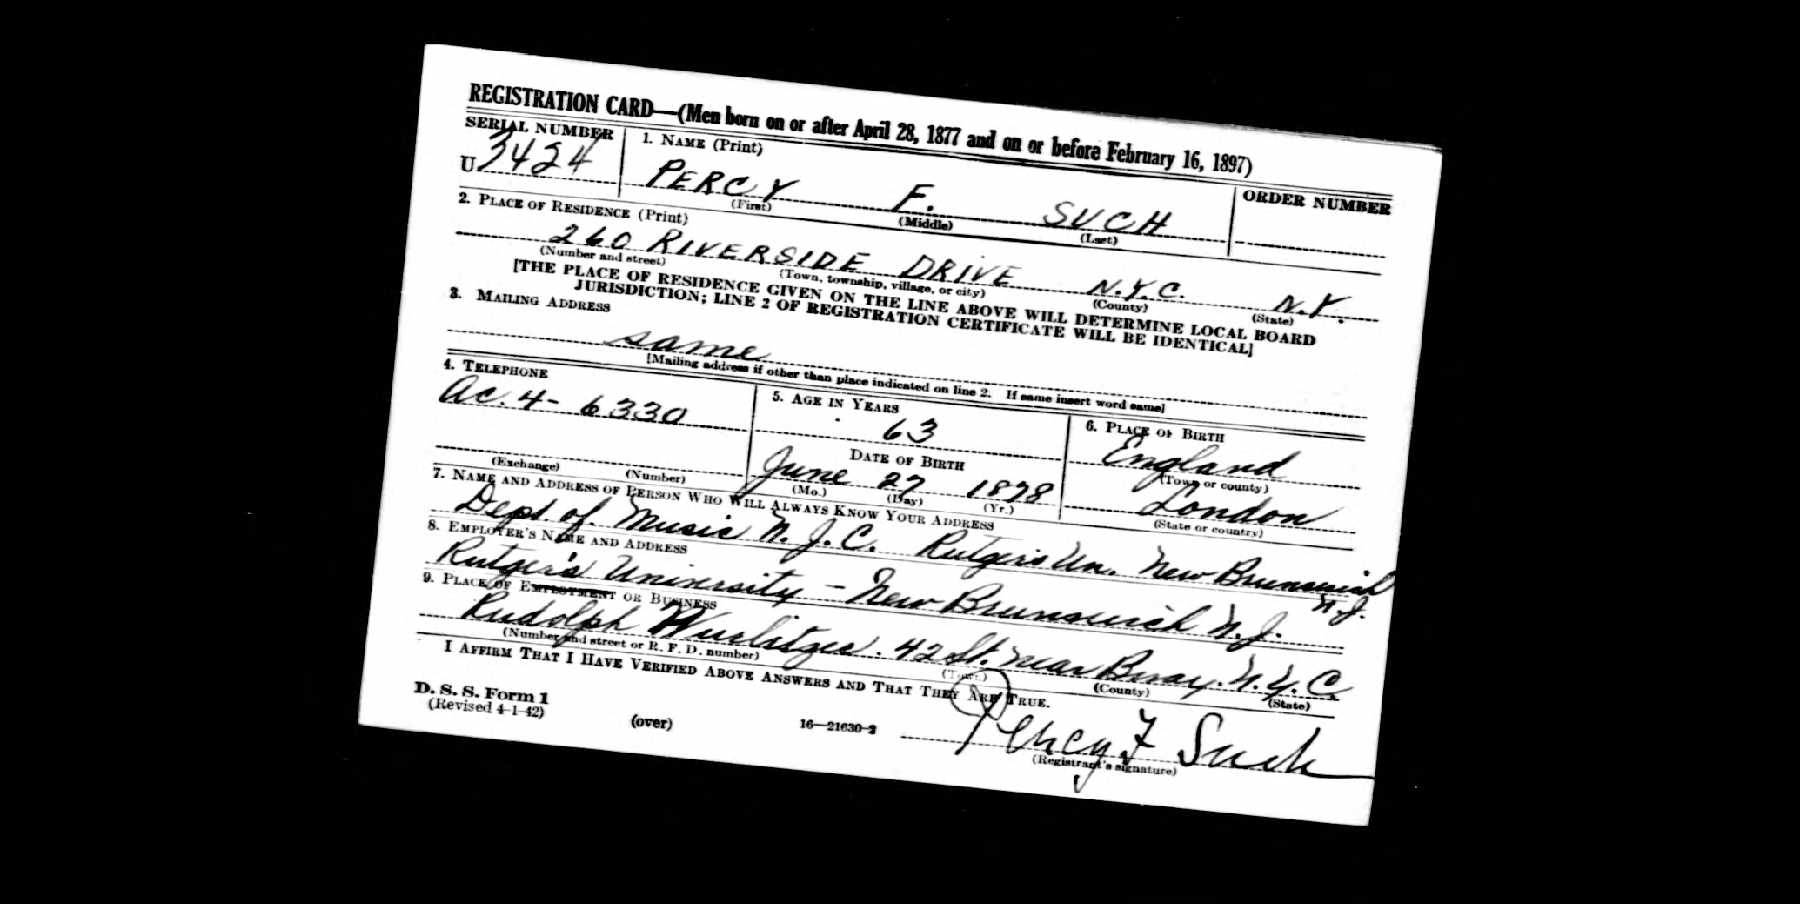 REGISTRATION CARD—(Men born on or after April 28, 1877 and on or before February 16, 1897)
SERIAL NUMBER
1. NAME (Print)
ORDER NUMBER
U 3424
PERCY F. SUCH
(First) (Middle) (Last)
2. PLACE OF RESIDENCE (Print)
260 RIVERSIDE DRIVE N.Y.C. N.Y.
(Number and street) (Town, township, village, or city) (County) (State)
[THE PLACE OF RESIDENCE GIVEN ON THE LINE ABOVE WILL DETERMINE LOCAL BOARD
JURISDICTION; LINE 2 OF REGISTRATION CERTIFICATE WILL BE IDENTICAL]
3. MAILING ADDRESS
same
[Mailing address if other than place indicated on line 2. If same insert word same]
4. TELEPHONE
Ac. 4- 6330
(Exchange) (Number)
5. AGE IN YEARS
63
DATE OF BIRTH
June 27 1878
(Mo.) (Day) (Yr.)
6. PLACE OF BIRTH
England
(Town or county)
London
(State or country)
7. NAME AND ADDRESS OF PERSON WHO WILL ALWAYS KNOW YOUR ADDRESS
Dept of Music N.J.C. Rutgers Un. New Brunswick
N.J.
8. EMPLOYER'S NAME AND ADDRESS
Rutger's University - New Brunswick N.J.
9. PLACE OF EMPLOYMENT OR BUSINESS
Rudolph Wurlitzer. 42 St. near Bway. N.Y.C.
(Number and street or R. F. D. number) (Town) (County) (State)
I AFFIRM THAT I HAVE VERIFIED ABOVE ANSWERS AND THAT THEY ARE TRUE.
D. S. S. Form 1
(Revised 4-1-42)
(over)
16—21630-2
Percy F Such
(Registrant's signature)